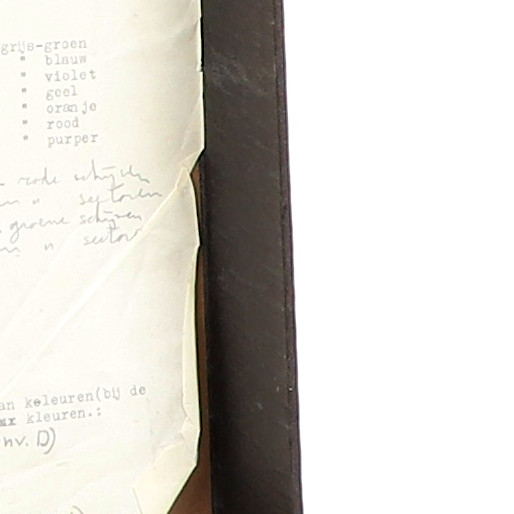 grijs-groen
" blauw
" violet
" geel
" oranje
" rood
" purper
rode schijven
" sectoren
groene schijven
" sectoren
an keleuren(bij de
kleuren.:
nv. D)